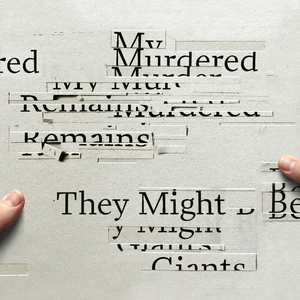 My
red Murdered
Murder
My Mur
Remains
Murdered
Remains
They Might Be
y Might
Giants
Giants